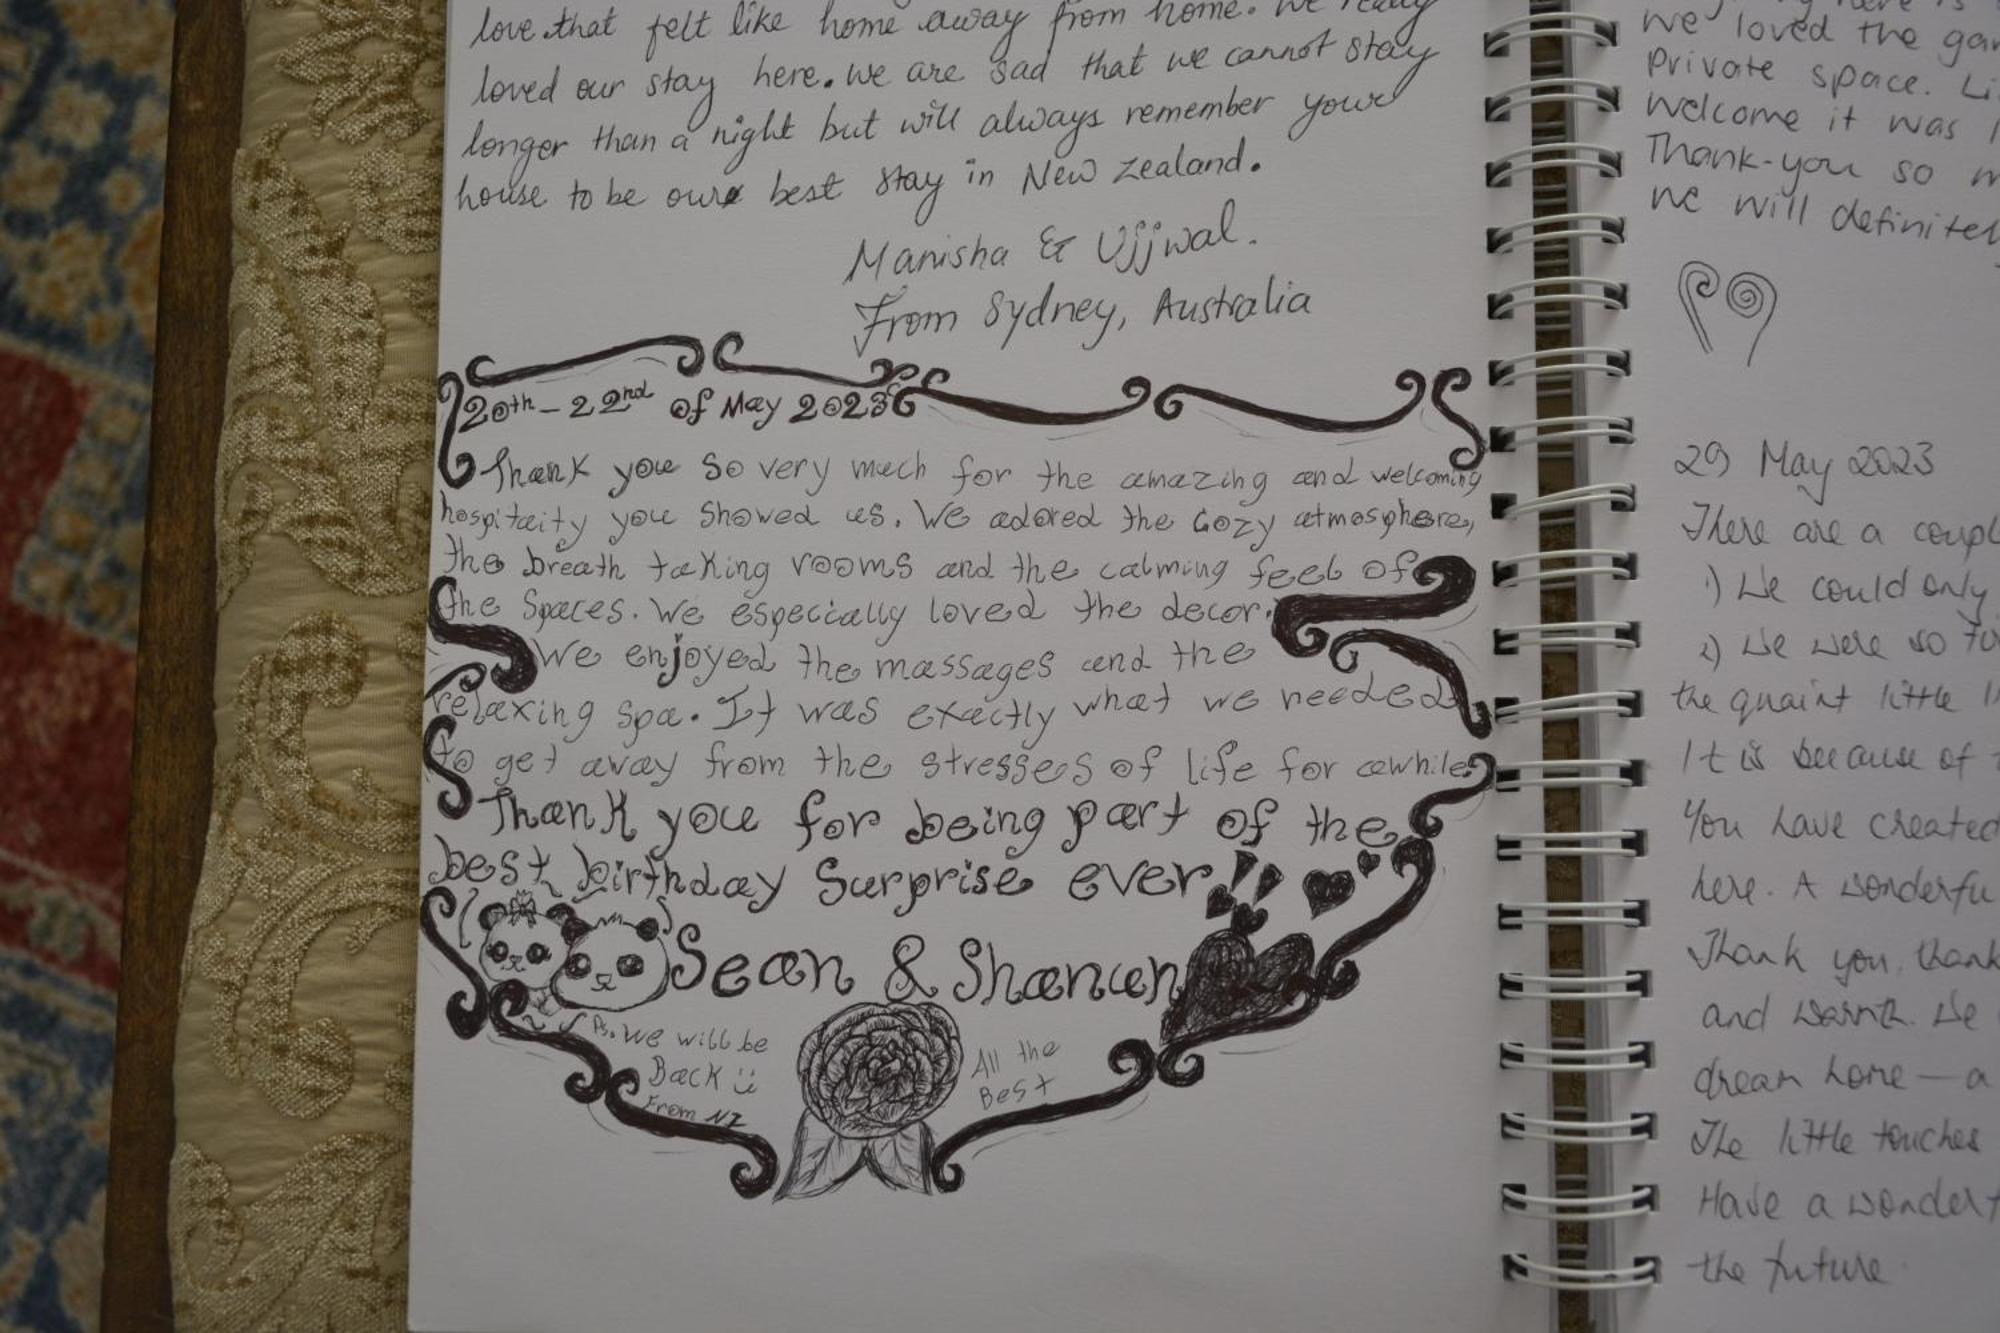 love that felt like home away from home. We really
loved our stay here. we are sad that we cannot stay
longer than a night but will always remember your
house to be our best stay in New Zealand.
Manisha & Ujjwal.
From Sydney, Australia
20th - 22nd of May 2023
Thank you so very much for the amazing and welcoming
hospitaity you showed us. We adored the cozy atmosphere,
the breath taking rooms and the calming feel of
the spaces. We especially loved the decor.
We enjoyed the massages and the
relaxing spa. It was exactly what we needed
to get away from the stresses of life for awhile
Thank you for being part of the
best birthday Surprise ever!!
Sean & Shanun
Ps. We will be
Back ü
From NZ
All the
Best
here is
we loved the
Private space.
Welcome it was
Thank-you so
we will
29 May 2023
There are a
1) We could only
2) We were so
the quaint little
It is because of
You have created
here. A
Thank you, thank
and warmth. We
dream home — a
The little touches
Have a
the future